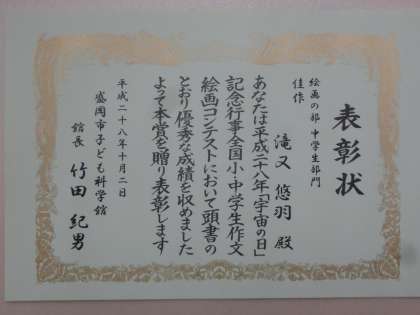 表彰状
絵画の部 中学生部門
佳作
滝又 悠羽 殿
あなたは平成二十八年「宇宙の日」
記念行事全国小・中学生作文
絵画コンテストにおいて頭書の
とおり優秀な成績を収めました
よって本賞を贈り表彰します
平成二十八年十月二日
盛岡市子ども科学館
館長 竹田 紀男